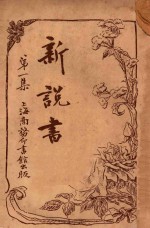 新説書
第一集
上海商務印書館出版